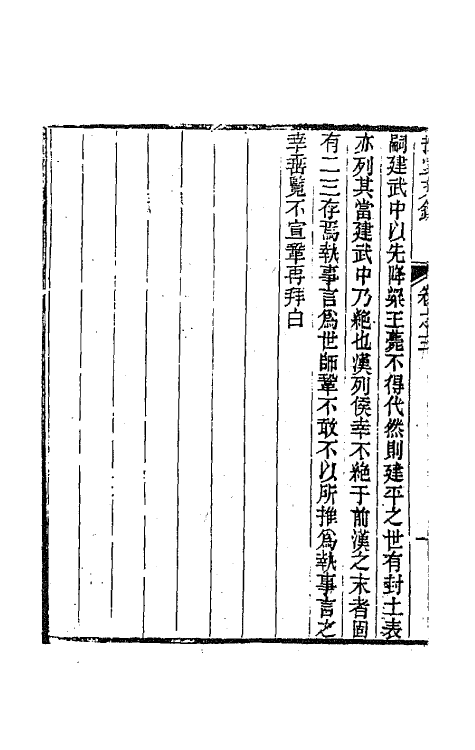 嗣建武中以先降梁王薨不得代然則建平之世有封土表
亦列其當建武中乃絕也漢列侯幸不絕于前漢之末者固
有二三存焉執事言爲世師鞏不敢不以所推爲執事言之
幸垂覽不宣鞏再拜白